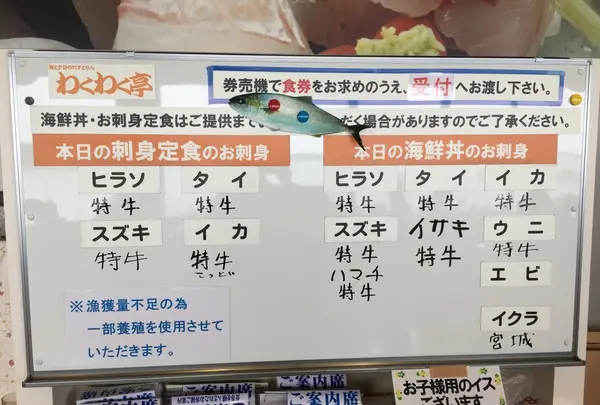 わくわく亭
券売機で食券をお求めのうえ、受付へお渡し下さい。
海鮮丼・お刺身定食はご提供まで
だく場合がありますのでご了承ください。
本日の刺身定食のお刺身
ヒラソ
特牛
タイ
特牛
スズキ
特牛
イカ
特牛
本日の海鮮丼のお刺身
ヒラソ
特牛
タイ
特牛
イカ
特牛
スズキ
特牛
イサキ
特牛
ウニ
特牛
ハマチ
特牛
エビ
イクラ
宮城
※漁獲量不足の為
一部養殖を使用させて
いただきます。
ご案内席
ご案内席
ご案内席
ご案内席
お子様用のイス
ございます